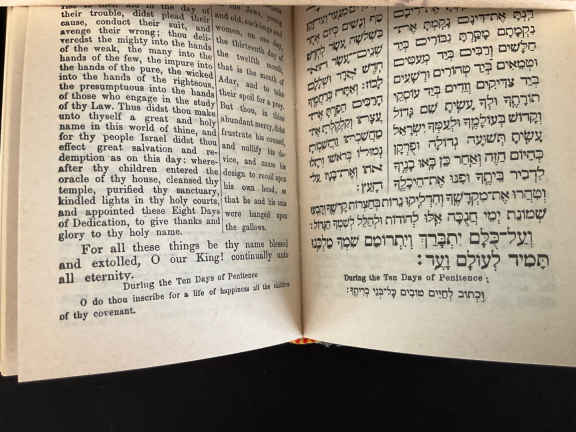 their trouble, didst plead their
cause, conduct their suit, and
avenge their wrong; thou deli-
veredst the mighty into the hands
of the weak, the many into the
hands of the few, the impure into
the hands of the pure, the wicked
into the hands of the righteous,
the presumptuous into the hands
of those who engage in the study
of thy Law. Thus didst thou make
unto thyself a great and holy
name in this world of thine, and
for thy people Israel didst thou
effect great salvation and re-
demption as on this day: where-
after thy children entered the
oracle of thy house, cleansed thy
temple, purified thy sanctuary,
kindled lights in thy holy courts,
and appointed these Eight Days
of Dedication, to give thanks and
glory to thy holy name.
and old,
women, on one day,
the thirteenth day of
the twelfth month,
that is the month of
Adar, and to take
their spoil for a prey.
But thou, in thine
abundant mercy, didst
frustrate his counsel,
and nullify his de-
vice, and make his
design to recoil upon
his own head, so
that he and his sons
were hanged upon
the gallows.
For all these things be thy name blessed
and extolled, O our King! continually unto
all eternity.
During the Ten Days of Penitence
O do thou inscribe for a life of happiness all the children
of thy covenant.
דַּנְתָּ אֶת־דִּינָם נָקַמְתָּ אֶת־
נִקְמָתָם מָסַרְתָּ גִבּוֹרִים בְּיַד
חַלָּשִׁים וְרַבִּים בְּיַד מְעַטִּים
וּטְמֵאִים בְּיַד טְהוֹרִים וּרְשָׁעִים
בְּיַד צַדִּיקִים וְזֵדִים בְּיַד עוֹסְקֵי
תוֹרָתֶךָ וּלְךָ עָשִׂיתָ שֵׁם גָּדוֹל
וְקָדוֹשׁ בְּעוֹלָמֶךָ וּלְעַמְּךָ יִשְׂרָאֵל
עָשִׂיתָ תְּשׁוּעָה גְדוֹלָה וּפֻרְקָן
כְּהַיּוֹם הַזֶּה וְאַחַר כֵּן בָּאוּ בָנֶיךָ
לִדְבִיר בֵּיתֶךָ וּפִנּוּ אֶת־הֵיכָלֶךָ
טַף וְנָשִׁים בְּיוֹם אֶחָד
עָשָׂר לְחֹדֶשׁ
שְׁנֵים־עָשָׂר
חֹדֶשׁ אֲדָר וּשְׁלָלָם
הֵפַרְתָּ אֶת־
עֲצָתוֹ וְקִלְקַלְתָּ אֶת־
מַחֲשַׁבְתּוֹ
גְּמוּלוֹ בְּרֹאשׁוֹ וְתָלוּ
אֹתוֹ וְאֶת־בָּנָיו עַל־
הָעֵץ:
וְטִהֲרוּ אֶת־מִקְדָּשֶׁךָ וְהִדְלִיקוּ נֵרוֹת בְּחַצְרוֹת קָדְשֶׁךָ וְקָבְעוּ
שְׁמוֹנַת יְמֵי חֲנֻכָּה אֵלּוּ לְהוֹדוֹת וּלְהַלֵּל לְשִׁמְךָ הַגָּדוֹל:
וְעַל־כֻּלָּם יִתְבָּרַךְ וְיִתְרוֹמַם שִׁמְךָ מַלְכֵּנוּ
תָּמִיד לְעוֹלָם וָעֶד:
During the Ten Days of Penitence:
וּכְתוֹב לְחַיִּים טוֹבִים כָּל־בְּנֵי בְרִיתֶךָ: